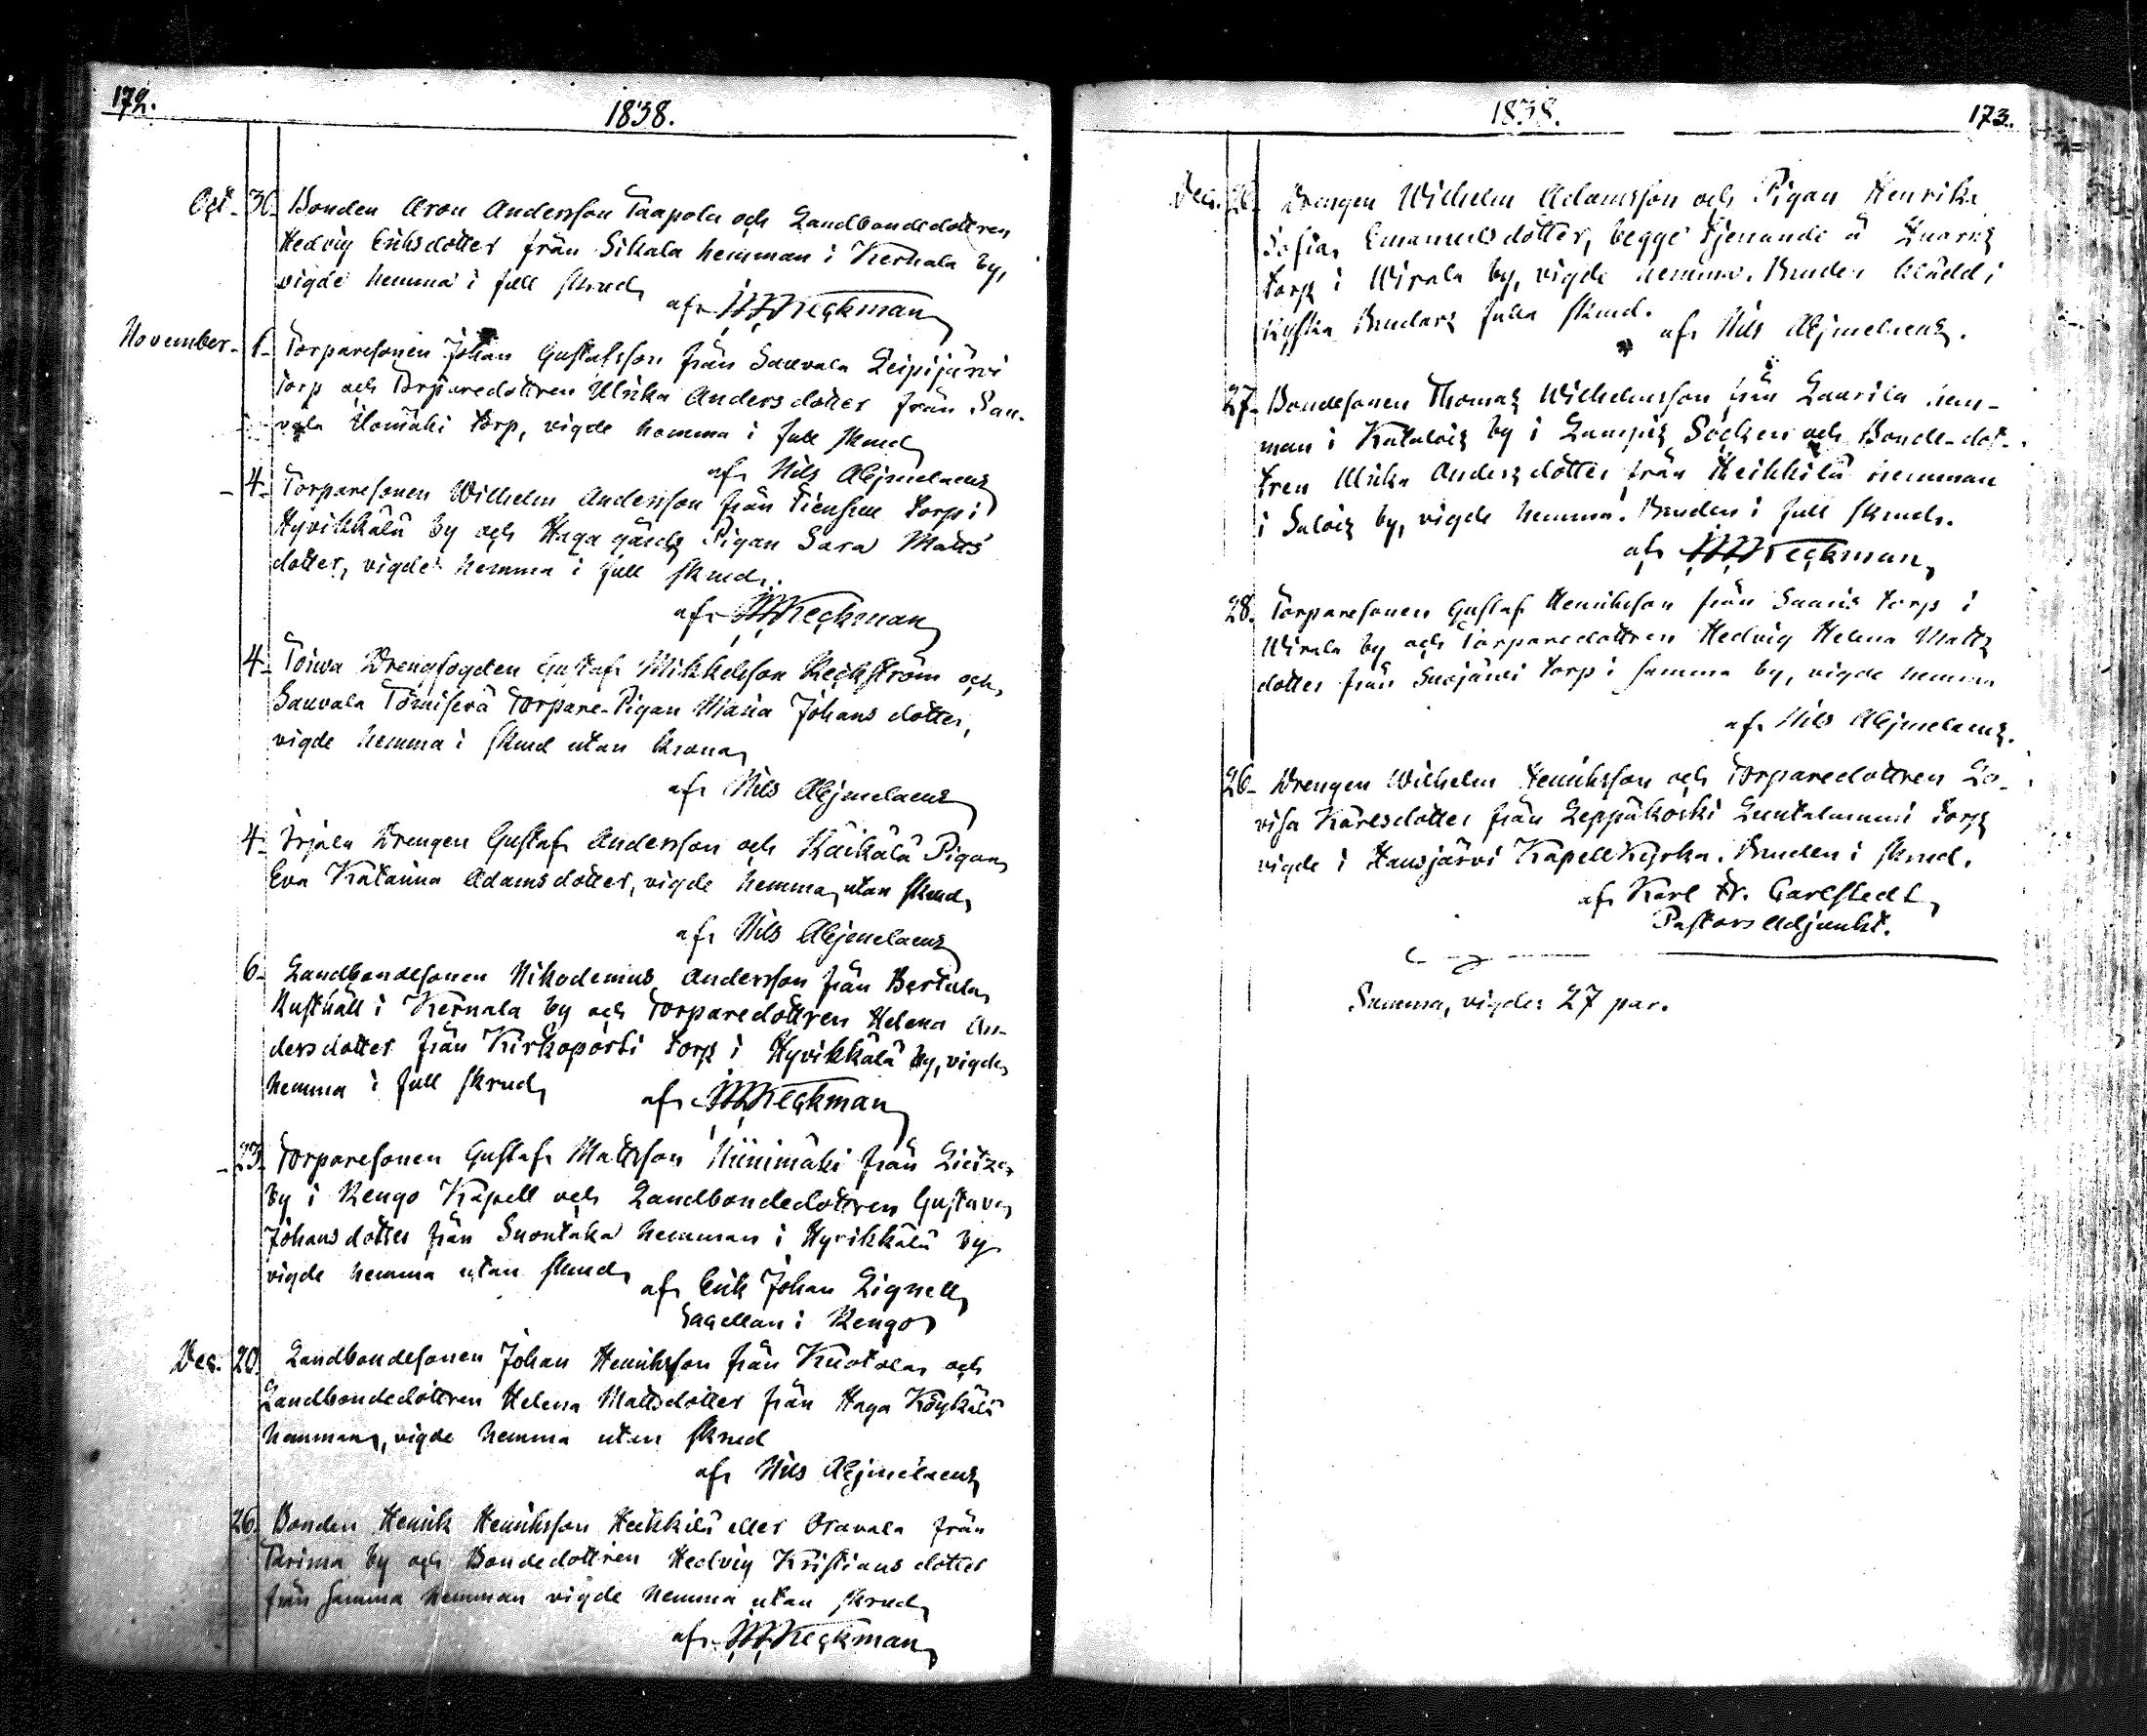 172.
1838.
Oct. 30. Bonden Aron Andersson Taapola och Landbondedottren
Hedvig Eriksdotter från Sikala hemman i Kernala by,
vigde hemma i full skrud
af Keckman
November 1. Torparesonen Johan Gustafsson från Sauvala Leipijärvi
torp och Torparedottren Ulrika Andersdotter från Sau-
vala torp, vigde hemma i full skrud
af Nils Abjmelaeus
4. Torparesonen Wilhelm Andersson från torp i
Hyvikkälä by och Haga gårds Pigan Sara Matts
dotter, vigde hemma i full skrud.
af Keckman
4. Toiwa Drengfogden Gustaf Mikkelsson och
Sauvala Torpare-Pigan Maria Johansdotter,
vigde hemma i skrud utan krona
af Nils Abjmelaeus
4. Irjala Drengen Gustaf Andersson och Räikälä Pigan
Eva Katarina Adamsdotter, vigde hemma utan skrud
af Nils Abjmelaeus
6. Landbondesonen Nikodemus Andersson från Bertula
Rusthåll i Kernala by och Torparedottren Helena An-
dersdotter från Kirkoporti torp i Hyvikkälä by, vigde
hemma i full skrud
af Keckman
23. Torparesonen Gustaf Mattsson Niinimäki från Lietzen
by i Rengo Kapell och Landbondedottren Gustava
Johansdotter från Suontaka hemman i Hyvikkälä by
vigde hemma utan skrud
af Erik Johan Lignell
Sacellan i Rengo
Dec. 20. Landbondesonen Johan Henriksson från och
Landbondedottren Helena Mattsdotter från Haga Köykälä
hemman, vigde hemma utan skrud
af Nils Abjmelaeus
26. Bonden Henrik Henriksson Heikkilä eller Oravala från
Tarima by och Bondedottren Hedvig Kristiansdotter
från samma hemman vigde hemma utan skrud
af Keckman
1838.
173.
Dec. 26. Drengen Wilhelm Adamsson och Pigan Henrika
Sofia Emanuelsdotter, begge tjenande å
torp i Wirala by, vigde hemma. Bruden klädd i
kyrko Brudars fulla skrud.
af Nils Abjmelaeus.
27. Bondesonen Thomas Wilhelmsson från Laurila hem-
man i Kataloiz by i Lampis Socken och Bonde-dot-
tren Ulrika Andersdotter från Heikkilä hemman
i Saloiz by, vigde hemma. Bruden i full skrud.
af Keckman
28. Torparesonen Gustaf Henriksson från Saaris torp i
Wirala by och Torparedottren Hedvig Helena Matts
dotter från Suojärvi torp i samma by, vigde hemma
af Nils Abjmelaeus.
26. Drengen Wilhelm Henriksson och Torparedottren Lo-
visa Karlsdotter från Leppäkoski Luntalammi torp
vigde i Hausjärvi Kapell Kyrka. Bruden i skrud.
af Karl Fr. Carlstedt
Pastors Adjunkt.
Summa, vigde 27 par.